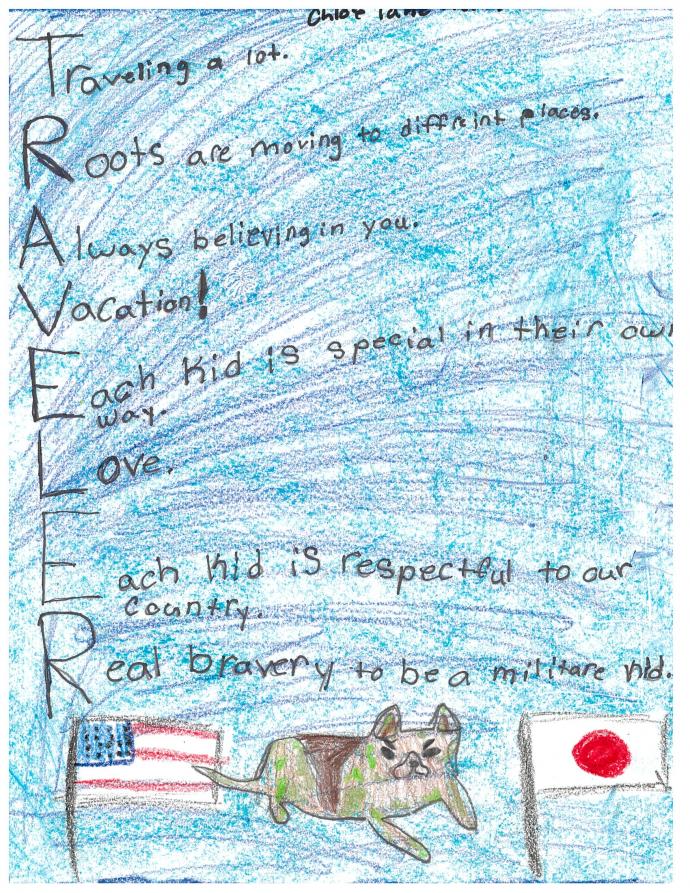 Chloe
Traveling a lot.
Roots are moving to diffreint places.
Always believing in you.
Vacation!
Each kid is special in their own
way.
Love.
Each kid is respectful to our
Country.
Real bravery to be a militare kid.